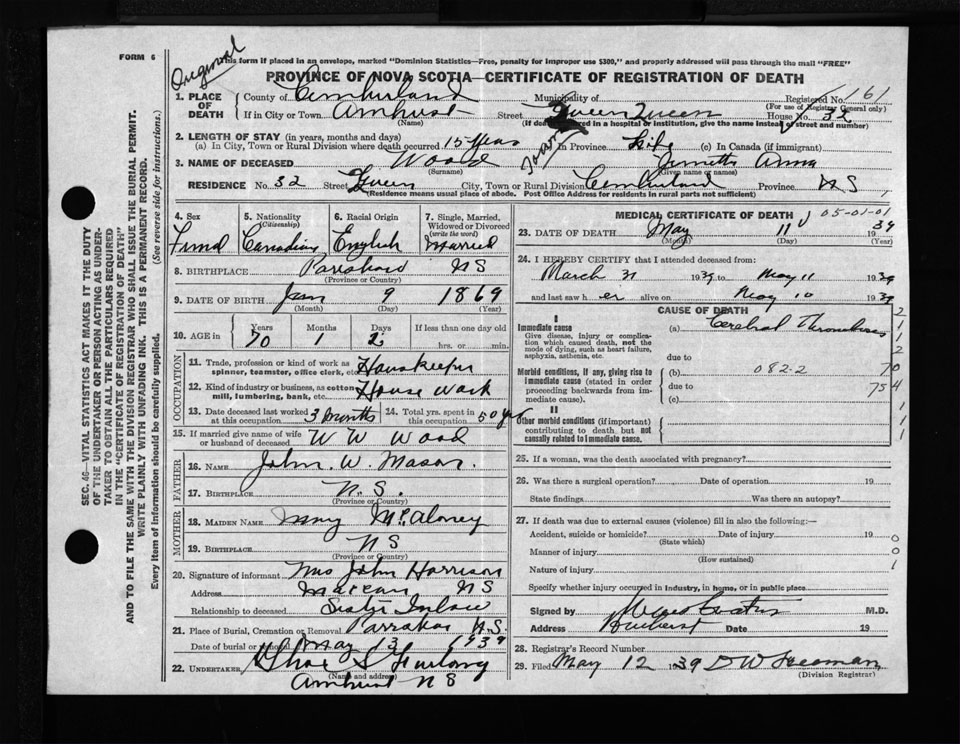 FORM 6
Original
This form if placed in an envelope, marked "Dominion Statistics—Free, penalty for improper use $300," and properly addressed will pass through the mail "FREE"
PROVINCE OF NOVA SCOTIA—CERTIFICATE OF REGISTRATION OF DEATH
1. PLACE OF DEATH County of Cumberland Municipality of Registered No. 161
(For use of Registrar General only)
If in City or Town Amherst Street Queen House No. 32
(Name) (If death occurred in a hospital or institution, give the name instead of street and number)
2. LENGTH OF STAY (in years, months and days)
(a) In City, Town or Rural Division where death occurred 15 years In Province Life (c) In Canada (if immigrant)
3. NAME OF DECEASED Wood Anna
(Surname) (Given name or names)
RESIDENCE No. 32 Street Queen City, Town or Rural Division Cumberland Province N S
(Residence means usual place of abode. Post Office Address for residents in rural parts not sufficient)
4. Sex 5. Nationality (Citizenship) 6. Racial Origin 7. Single, Married, Widowed or Divorced (write the word)
Canadian English Married
8. BIRTHPLACE NS
(Province or Country)
9. DATE OF BIRTH Jan 9 1869
(Month) (Day) (Year)
10. AGE in Years Months Days If less than one day old
70 1 2 hrs. or min.
OCCUPATION
11. Trade, profession or kind of work as spinner, teamster, office clerk, etc. Housekeeper
12. Kind of industry or business, as cotton mill, lumbering, bank, etc. House work
13. Date deceased last worked at this occupation 3 Months 14. Total yrs. spent in this occupation 50 yrs
15. If married give name of wife or husband of deceased W W Wood
FATHER
16. NAME John. W. Mason.
17. BIRTHPLACE N. S.
(Province or Country)
MOTHER
18. MAIDEN NAME Mary McAloney
19. BIRTHPLACE N S
(Province or Country)
20. Signature of informant Mrs John Harrison
Address Maccan NS
Relationship to deceased Sister Inlaw
21. Place of Burial, Cremation or Removal N.S.
Date of burial or removal May 13 1939
22. UNDERTAKER Furlong
(Name and address)
Amherst N S
MEDICAL CERTIFICATE OF DEATH
05-01-01
23. DATE OF DEATH May 11 1939
(Month) (Day) (Year)
24. I HEREBY CERTIFY that I attended deceased from:
March 31 1939 to May 11 1939
and last saw h er alive on May 10 1939
CAUSE OF DEATH
I
Immediate cause (a) Cerebral Thrombosis
Give disease, injury or complication which caused death, not the mode of dying, such as heart failure, asphyxia, asthenia, etc.
due to
Morbid conditions, if any, giving rise to immediate cause (stated in order proceeding backwards from immediate cause).
(b) 082-2
due to
(c)
II
Other morbid conditions (if important) contributing to death, but not causally related to immediate cause.
2
1
1
2
70
754
1
1
1
25. If a woman, was the death associated with pregnancy?
26. Was there a surgical operation? Date of operation 19
State findings Was there an autopsy?
27. If death was due to external causes (violence) fill in also the following:—
Accident, suicide or homicide? Date of injury 19
(State which)
Manner of injury
(How sustained)
Nature of injury
0
0
1
Specify whether injury occurred in industry, in home, or in public place
Signed by M.D.
Address Amherst Date 19
28. Registrar's Record Number
29. Filed May 12 1939 D W Freeman
(Division Registrar)
SEC. 46—VITAL STATISTICS ACT MAKES IT THE DUTY
OF THE UNDERTAKER OR PERSON ACTING AS UNDER-
TAKER TO OBTAIN ALL THE PARTICULARS REQUIRED
IN THE "CERTIFICATE OF REGISTRATION OF DEATH"
AND TO FILE THE SAME WITH THE DIVISION REGISTRAR WHO SHALL ISSUE THE BURIAL PERMIT.
WRITE PLAINLY WITH UNFADING INK. THIS IS A PERMANENT RECORD.
Every item of information should be carefully supplied. (See reverse side for instructions.)